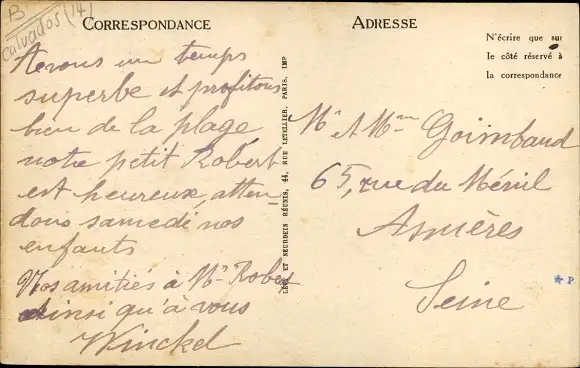 B
Calvados (14)
CORRESPONDANCE
Avons un temps
superbe et profitons
bien de la plage
notre petit Robert
est heureux, atten
dons samedi nos
enfants
Nos amitiés à Mr Robert
ainsi qu'à vous
Winckel
LÉVY ET NEURDEIN RÉUNIS, 44, RUE LETELLIER, PARIS. IMP
ADRESSE
N'écrire que sur
le côté réservé à
la correspondance
Mr & Mme Goimbaud
65, rue du Ménil
Asnières
Seine
* P